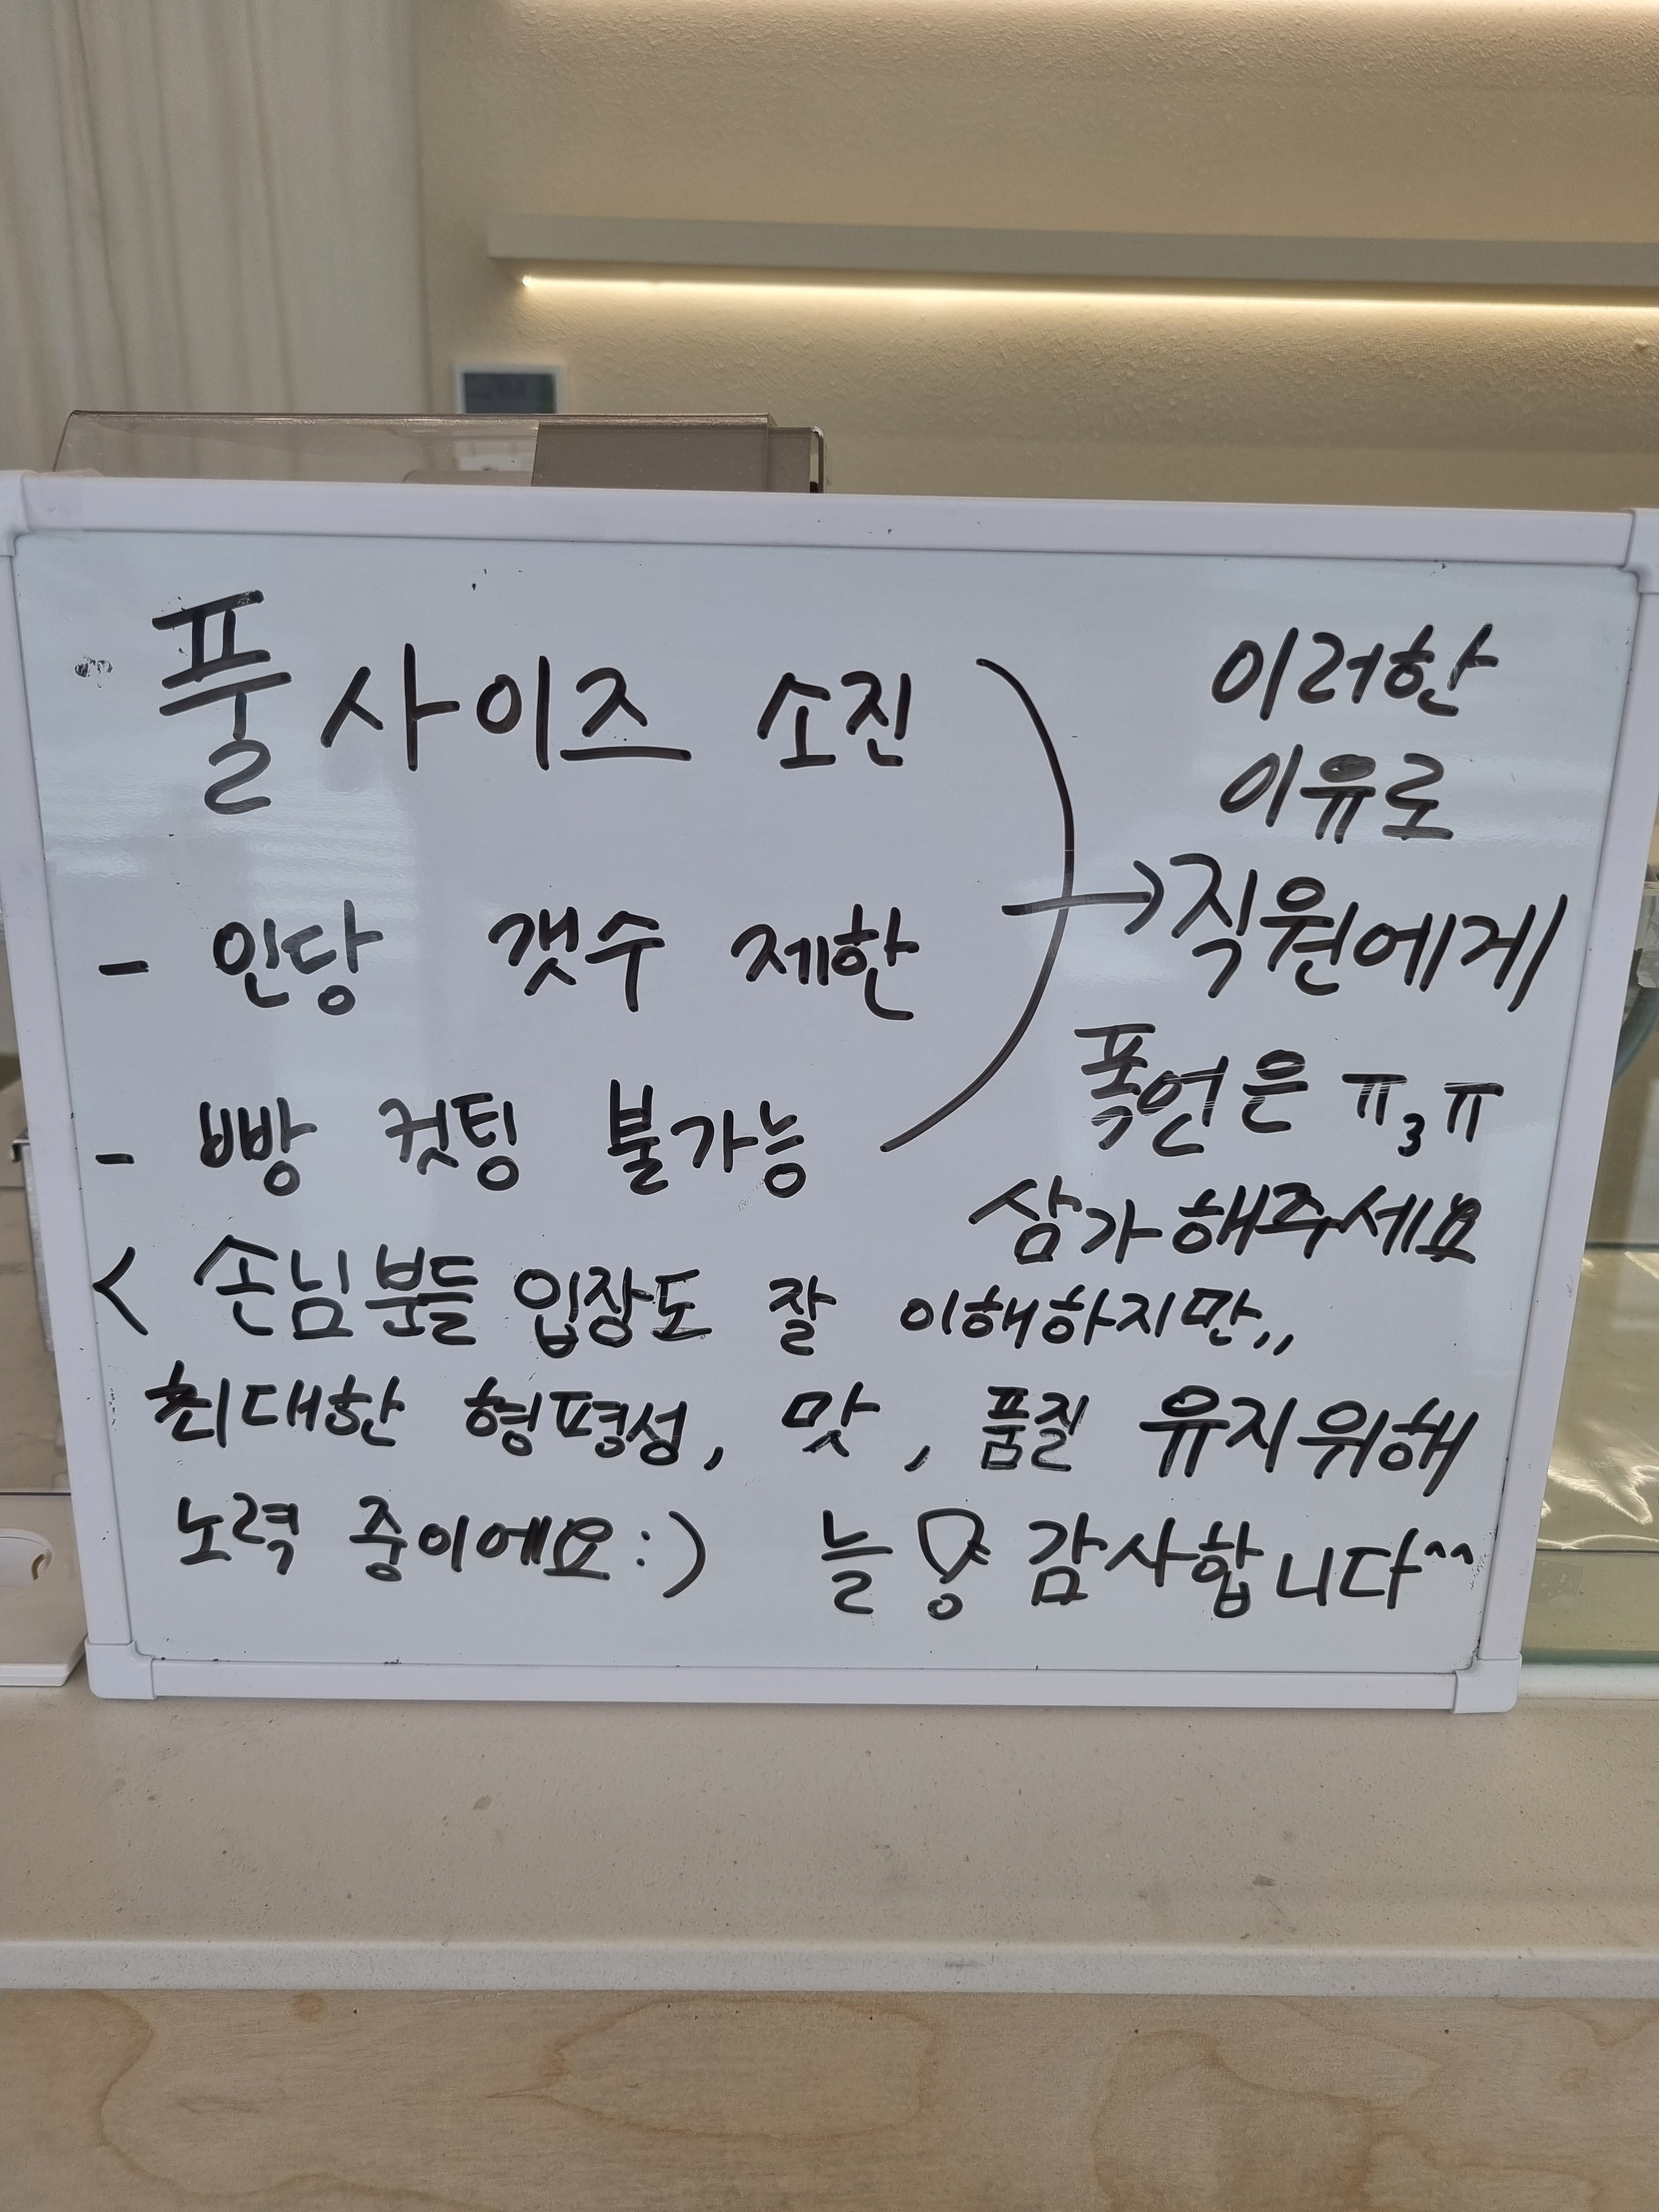 풀사이즈 소진
- 인당 갯수 제한
- 빵 컷팅 불가능
이러한
이유로
→ 직원에게
폭언은 ㅠ3ㅠ
삼가해주세요
< 손님분들 입장도 잘 이해하지만,,
최대한 형평성, 맛, 품질 유지위해
노력 중이에요:) 늘 감사합니다^^